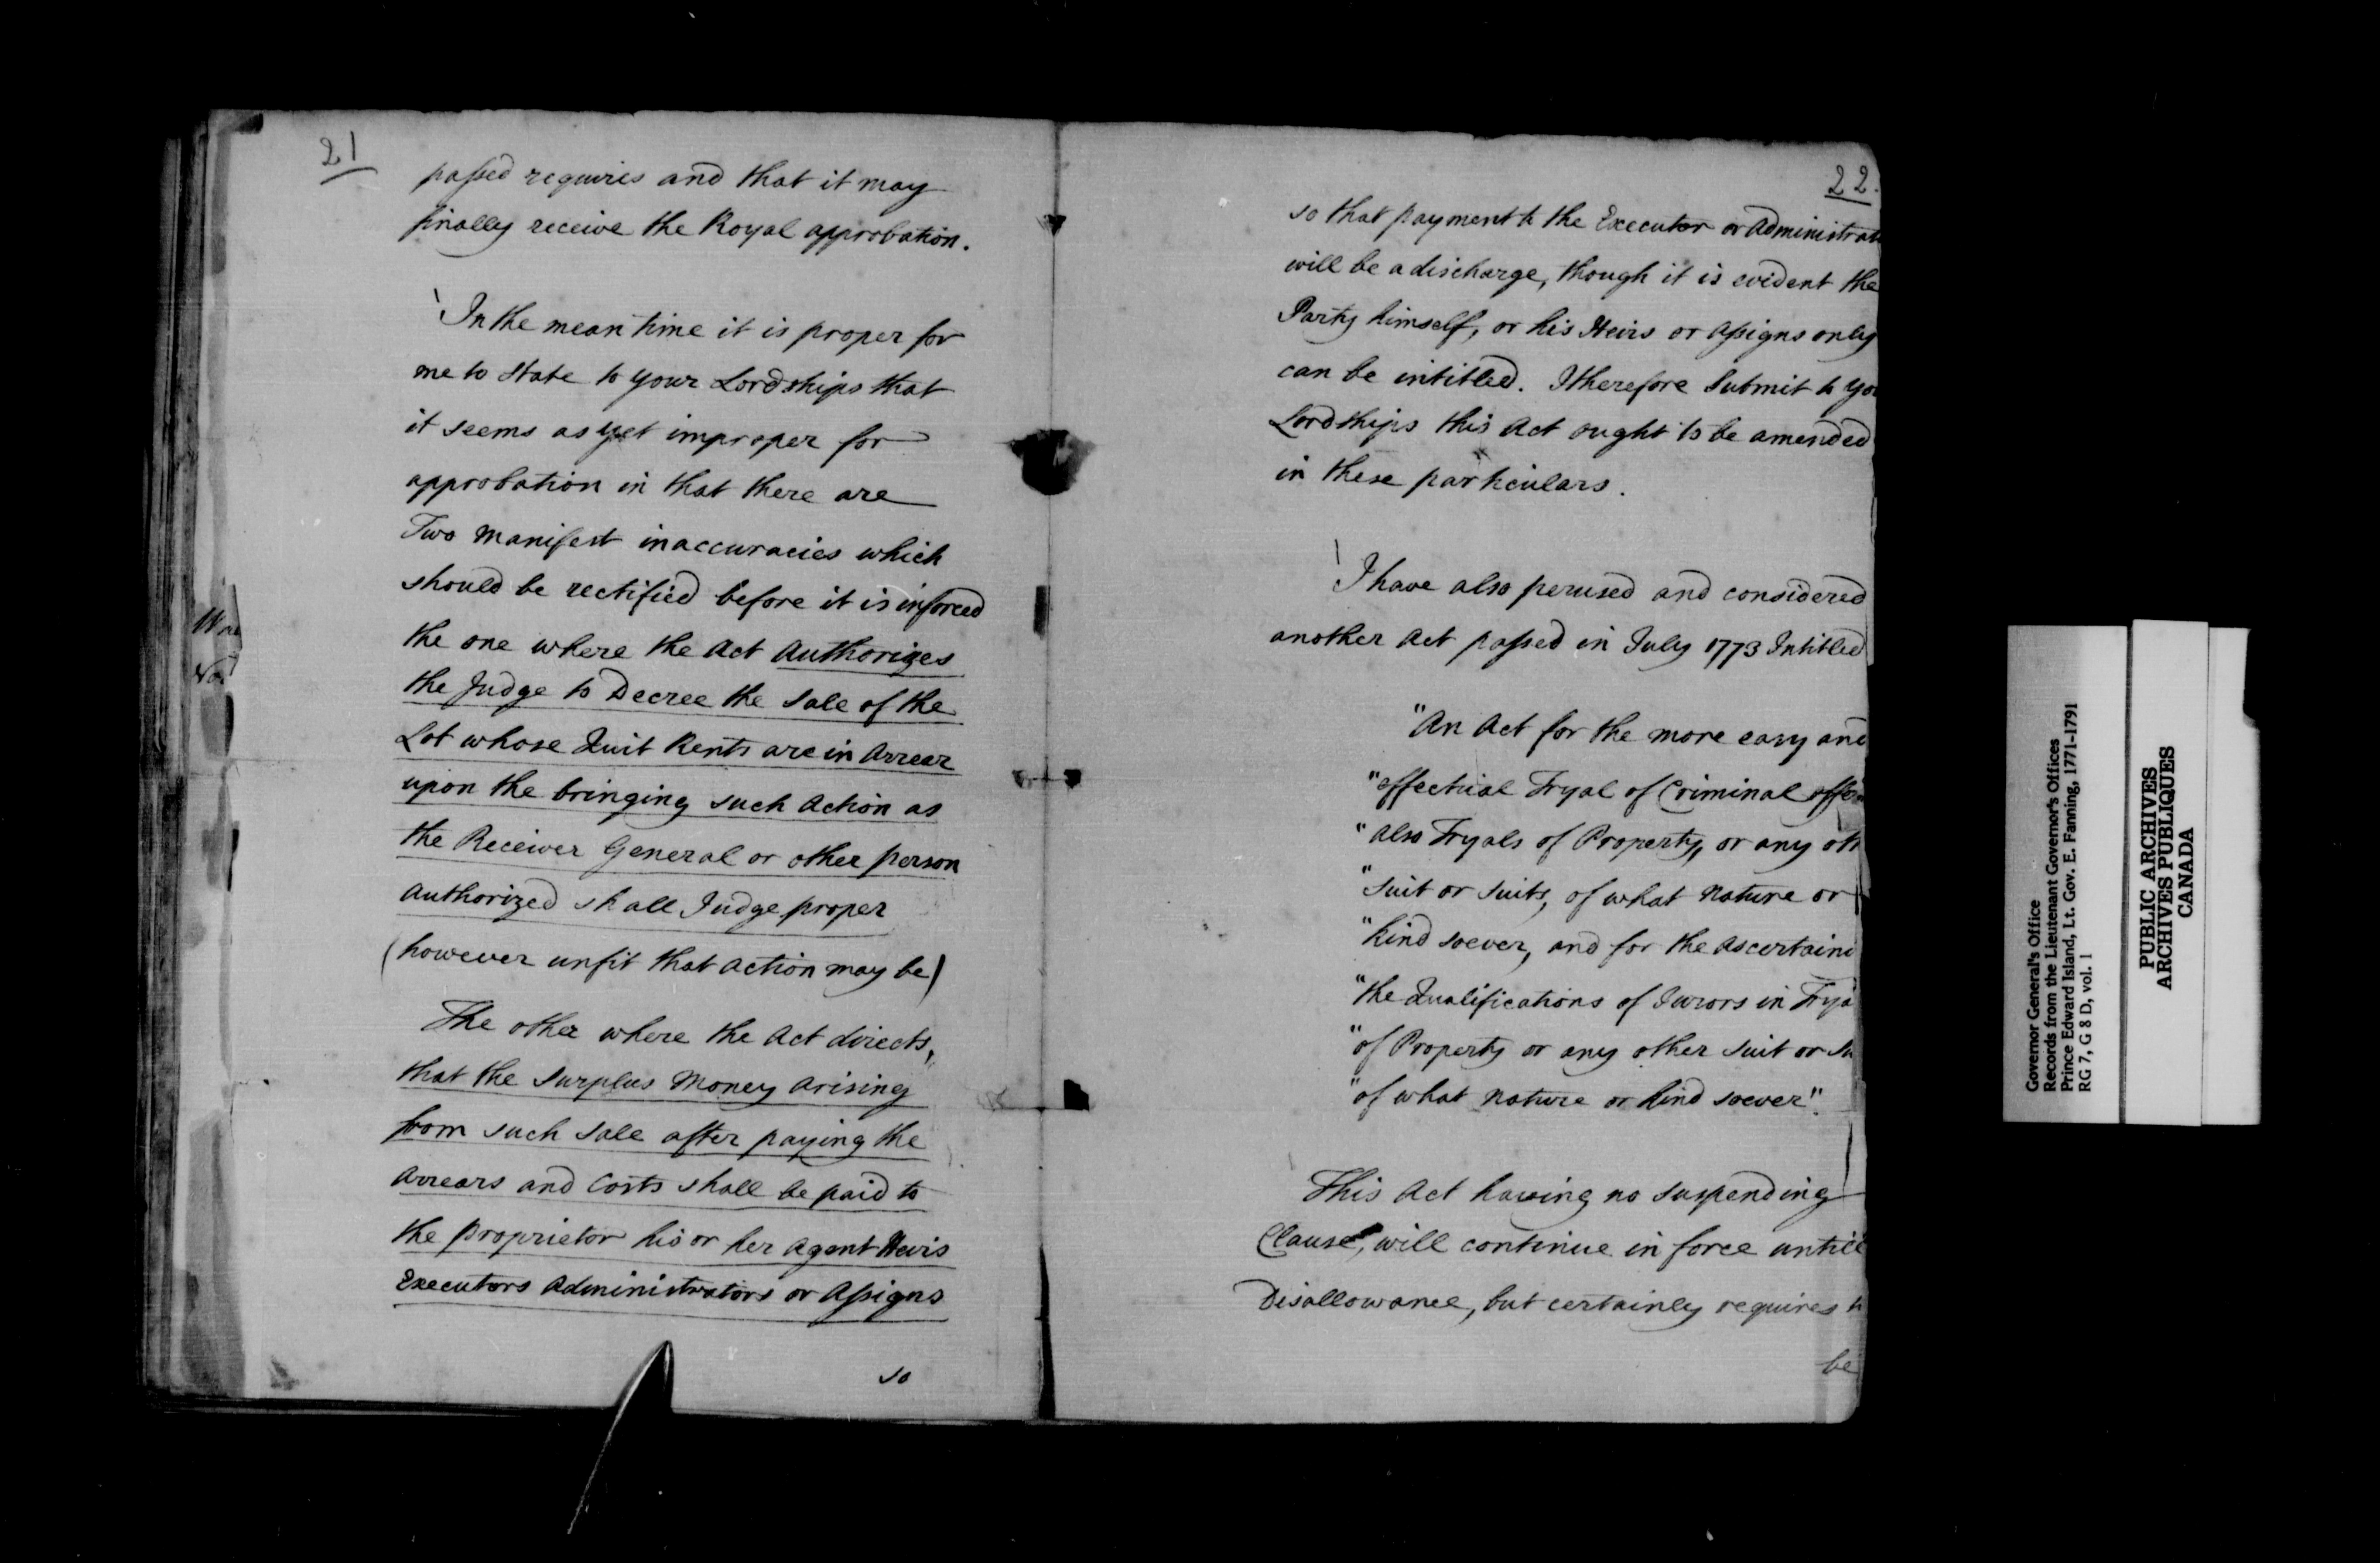 21
passed requires and that it may
finally receive the Royal approbation.
In the mean time it is proper for
me to State to your Lordships that
it seems as yet improper for
approbation in that there are
Two manifest inaccuracies which
should be rectified before it is inforced
the one where the Act Authorizes
the Judge to Decree the Sale of the
Lot whose Quit Rents are in Arrear
upon the bringing such Action as
the Receiver General or other person
Authorized shall Judge proper
(however unfit that action may be)
The other where the Act directs,
that the Surplus Money Arising
from such Sale after paying the
Arrears and Costs shall be paid to
the proprietor his or her Agent Heirs
Executors Administrators or Assigns
so
22.
so that payment to the Executor or Administrat
will be a discharge, though it is evident the
Party himself, or his Heirs or Assigns only
can be intitled. I therefore Submit to yo
Lordships this Act ought to be amended
in these particulars.
I have also perused and considered
another Act passed in July 1773 Intitled
"An Act for the more easy and
"effectual Tryal of Criminal offe
"also Tryals of Property, or any oth
"suit or suits, of what nature or
"kind soever, and for the Ascertaini
"the Qualifications of Jurors in Trya
"of Property or any other suit or su
"of what nature or kind soever".
This Act having no suspending
Clause, will continue in force untill
Disallowance, but certainly requires t
be
Governor General's Office
Records from the Lieutenant Governor's Offices
Prince Edward Island, Lt. Gov. E. Fanning, 1771-1791
RG 7, G 8 D, vol. 1
PUBLIC ARCHIVES
ARCHIVES PUBLIQUES
CANADA